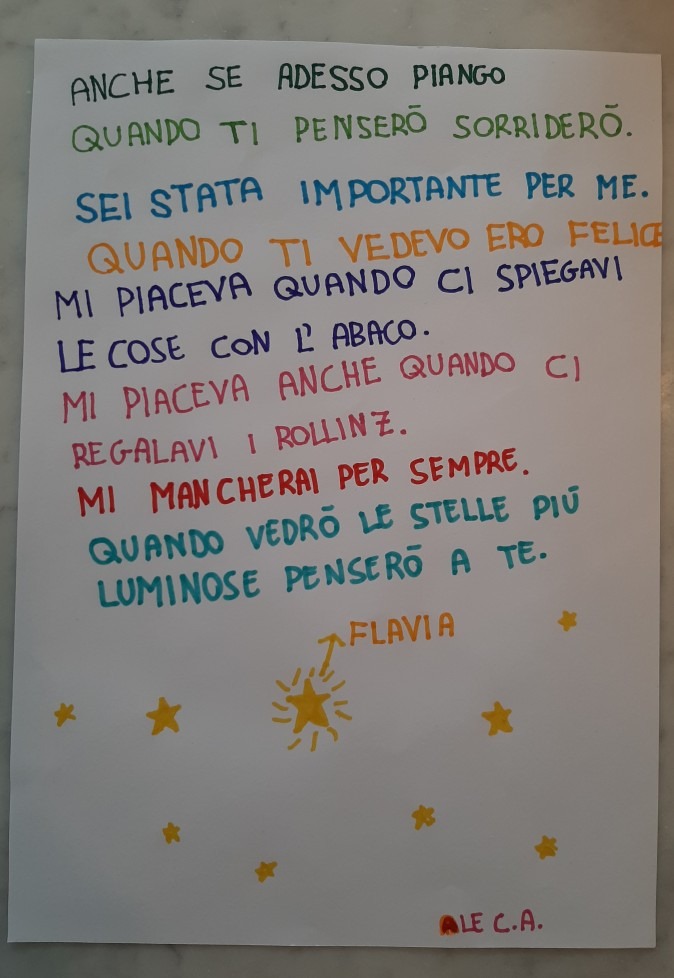 ANCHE SE ADESSO PIANGO
QUANDO TI PENSERÒ SORRIDERÒ.
SEI STATA IMPORTANTE PER ME.
QUANDO TI VEDEVO ERO FELICE
MI PIACEVA QUANDO CI SPIEGAVI
LE COSE CON L'ABACO.
MI PIACEVA ANCHE QUANDO CI
REGALAVI I ROLLINZ.
MI MANCHERAI PER SEMPRE.
QUANDO VEDRÒ LE STELLE PIÙ
LUMINOSE PENSERÒ A TE.
FLAVIA
ALE C.A.